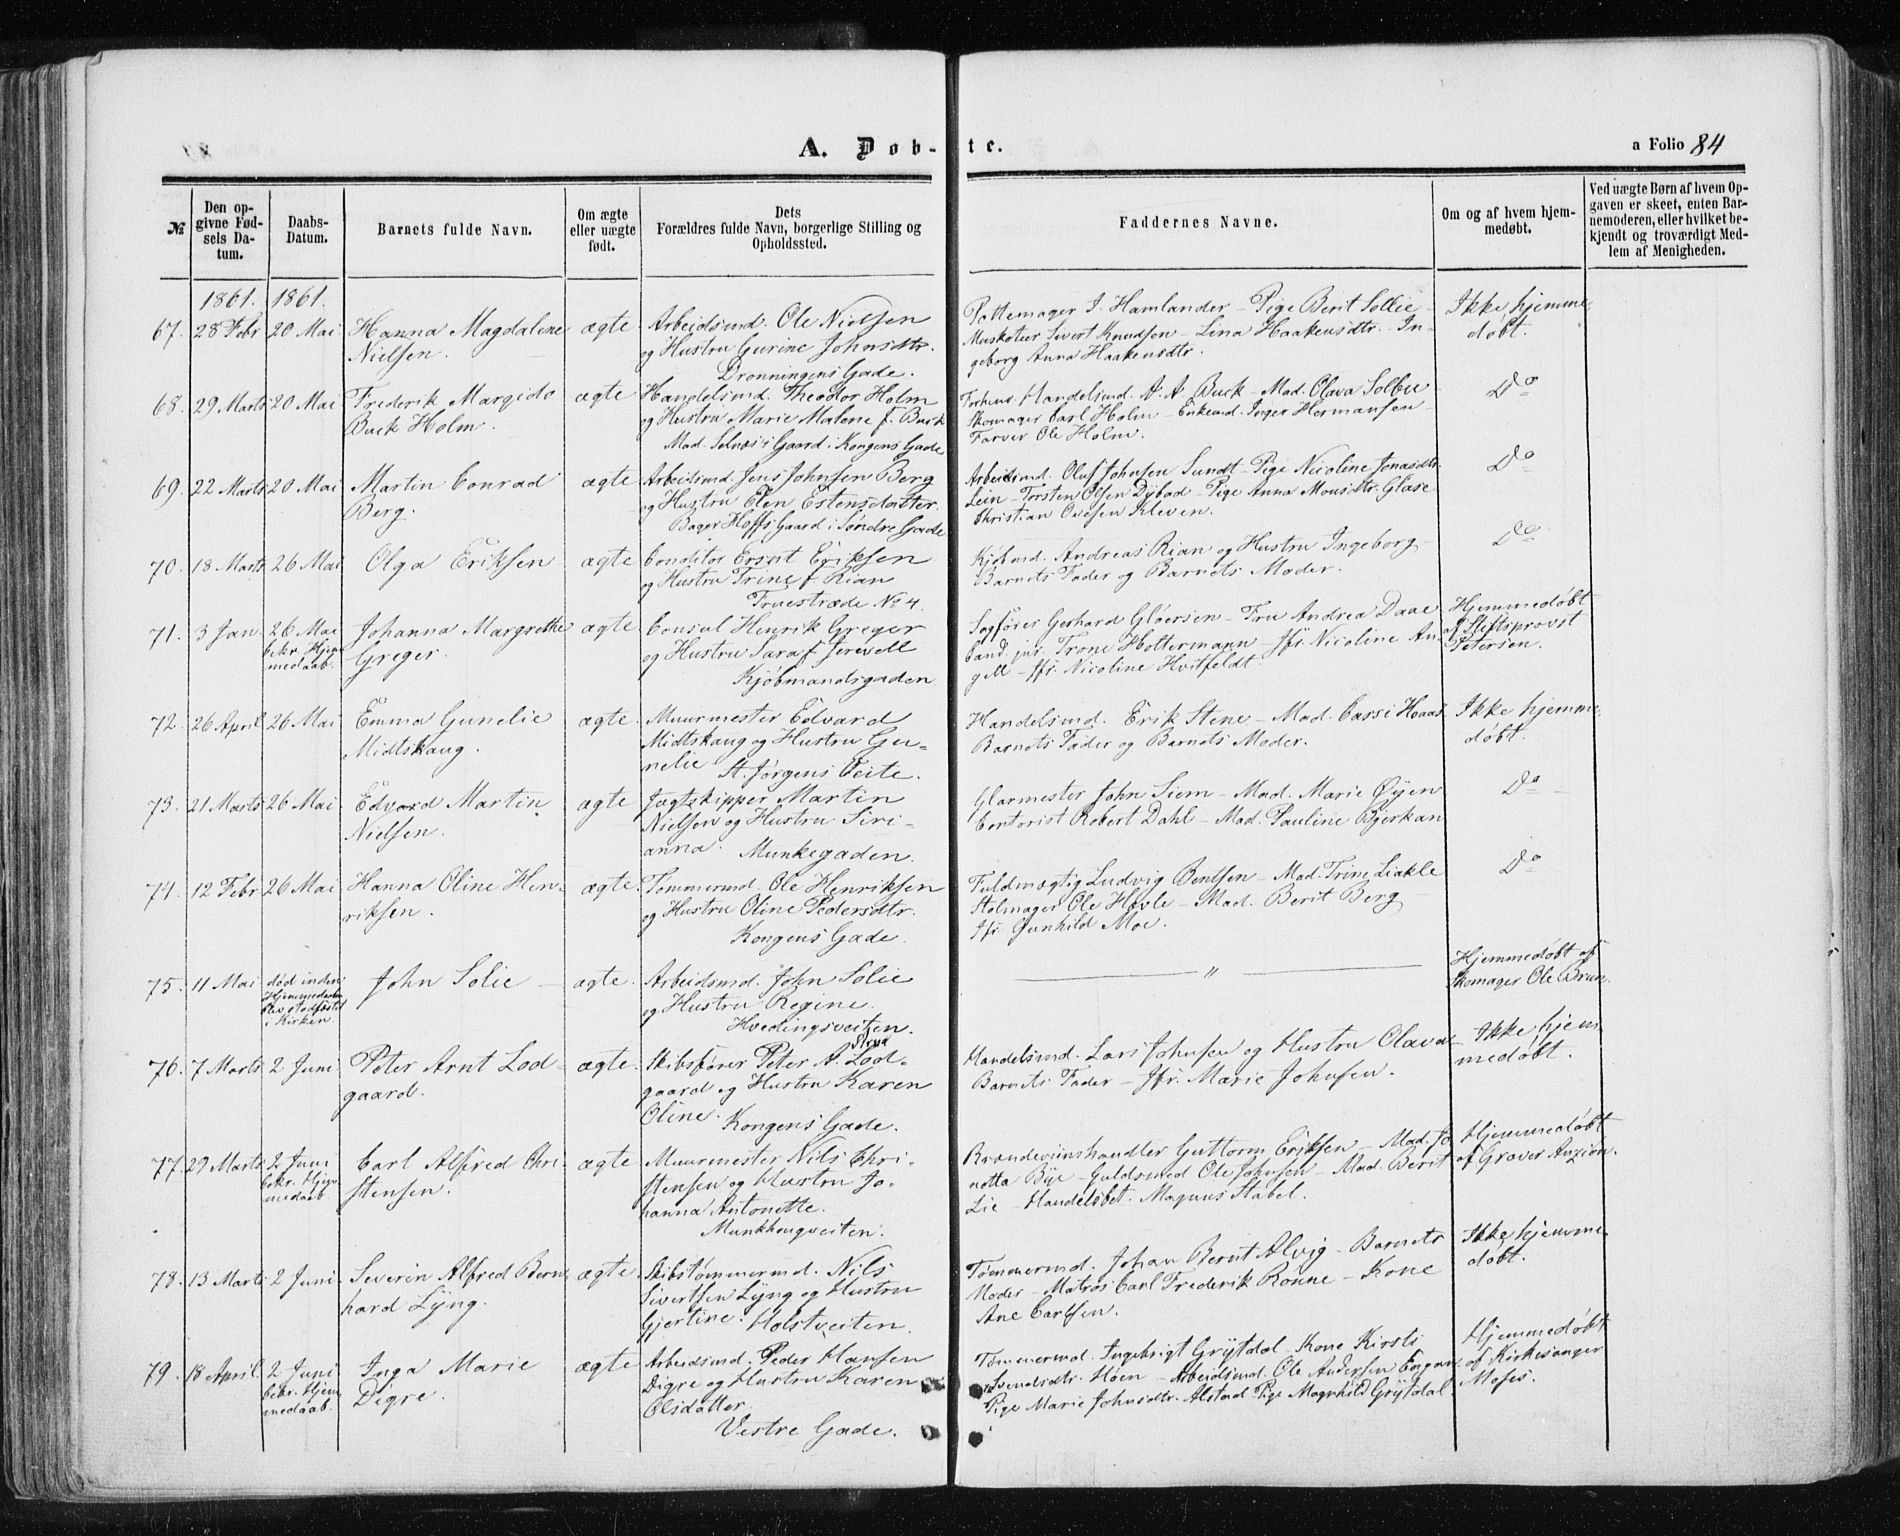 A. Døb-te.
a Folio 84
№
Den op-
givne Fød-
sels Da-
tum.
Daabs-
Datum.
Barnets fulde Navn.
Om ægte
eller uægte
født.
Dets
Forældres fulde Navn, borgerlige Stilling og
Opholdssted.
Faddernes Navne.
Om og af hvem hjem-
medøbt.
Ved uægte Børn af hvem Op-
gaven er skeet, enten Bar-
nemoderen, eller hvilket be-
kjendt og troværdigt Med-
lem af Menigheden.
1861. 1861.
67. 28 Febr 20 Mai Hanna Magdalene ægte Arbeidsmd. Ole Nielsen
Nielsen. og Hustru Gurine Johnsdtr.
Dronningens Gade.
Pottemager I. Hamlander - Pige Berit Sollie -
Musketeer Sivert Knudsen - Lina Haakensdtr. - In-
geborg Anna Haakensdtr.
Ikke hjemme
døbt.
68. 29 Marts 20 Mai Frederik Margido ægte Handelsmd. Theodor Holm
Buck Holm. og Hustru Marie Malene f. Buck
Mad. Selnæs's Gaard i Kongens Gade
Handelsmd. A. A. Buck - Mad. Olava Solbu
Skomager Carl Holm - Enkemd. Inger Hermansen -
Farver Ole Holm.
Do
69. 22 Marts 20 Mai Martin Conrad ægte Arbeidsmd. Jens Johnsen Berg
Berg. og Hustru Elen Estensdatter.
Bager Hoffs Gaard i Søndre Gade
Arbeidsmd. Oluf Johnsen Sundt - Pige Nicoline Jonasdtr.
Lein - Torsten Olsen Dybad - Pige Anna Monsdtr. Glase
Christian Ovesen Kleven.
Do
70. 18 Marts 26 Mai Olga Eriksen ægte Conditor Ernst Eriksen
og Hustru Trine f. Rian
Fruestræde No 4.
Kjøbmd. Andreas Rian og Hustru Ingeborg -
Barnets Fader og Barnets Moder.
Do
71. 3 Jan. 26 Mai Johanna Margrethe ægte Consul Henrik Greger
bekr. Hjem
medaab. Greger. og Hustru Sara f. Jervell
Kjøbmandsgaden
Sagfører Gerhard Gløersen - Fru Andrea Daae
Cand. jur. Trone Holtermann - Jfr. Nicoline An-
gell - Jfr. Nicoline Hvitfeldt.
Hjemmedøbt
af Stiftsprovst
Petersen.
72. 26 April 26 Mai Emma Gunelie ægte Muurmester Edvard
Midtskaug. Midtskaug og Hustru Gu-
nelie St. Jørgens Veite.
Handelsmd. Erik Stene - Mad. Cassi Haas
Barnets Fader og Barnets Moder.
Ikke hjemme
døbt.
73. 21 Marts 26 Mai Edvard Martin ægte Jagtskipper Martin
Nielsen. Nielsen og Hustru Siri-
anna. Munkegaden.
Glarmester John Siem - Mad. Marie Øyen
Contorist Robert Dahl - Mad. Pauline Bjerkan
Do
74. 12 Febr 26 Mai Hanna Oline Hen- ægte Tømmermd. Ole Henriksen
riksen. og Hustru Oline Pedersdtr.
Kongens Gade.
Fuldmægtig Ludvig Bentsen - Mad. Trine Liakle
Stolmager Ole Hovle - Mad. Berit Berg
Jfr. Gunhild Moe.
Do
75. 11 Mai død inden
Hjemmedaaben
blev stadfæstet
i Kirken. John Solie - ægte. Arbeidsmd. John Solie
og Hustru Regine.
Hvedingsveiten.
"
Hjemmedøbt af
Skomager Ole Brun.
76. 7 Marts 2 Juni Peter Arnt Lod- ægte. Skibsfører Peter A. Strud Lod-
gaard. gaard og Hustru Karen
Oline. Kongens Gade.
Handelsmd. Lars Johnsen og Hustru Olava
Barnets Fader - Jfr. Marie Johnsen.
Ikke hjem
medøbt.
77. 29 Marts 2 Juni Carl Alfred Chri- ægte Muurmester Nils Chri-
bekr. Hjem
medaab. stensen. stensen og Hustru Jo-
hanna Antonette.
Munkhaugveiten.
Brændeviinshandler Guttorm Eriksen - Mad. Jo
netta Bye - Guldsmed Ole Johnsen - Mad. Berit
Lie - Handelsbet. Magnus Stabel.
Hjemmedøbt
af Graver Anzion.
78. 13 Marts 2 Juni Severin Alfred Bern ægte Skibstømmermd. Nils
hard Lyng. Sivertsen Lyng og Hustru
Gjertine. Holstveiten.
Tømmermd. Johan Bernt Alvig - Barnets
Moder - Matros Carl Frederik Rønne - Kone
Ane Carlsen.
Ikke hjemme
døbt.
79. 18 April. 2 Juni Inga Marie ægte Arbeidsmd. Peder Hansen
bekr. Hjem
medaab. Digre. Digre og Hustru Karen
Olsdatter.
Vestre Gade.
Tømmermd. Ingebrigt Grytdal - Kone Kirsti
Svendsdtr. Høen - Arbeidsmd. Ole Andersen Engan
Pige Marie Johnsdtr. Alstad Pige Magnhild Grytdal
Hjemmedøbt
af Kirkesanger
Moses.